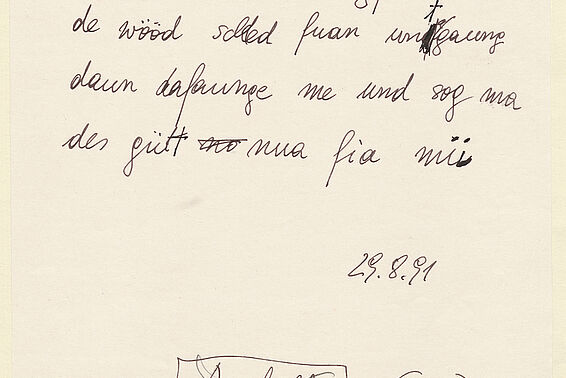 de wööd solled fuan untagaung
daun dafaunge me und sog ma
des gütt no nua fia mii
29.8.91